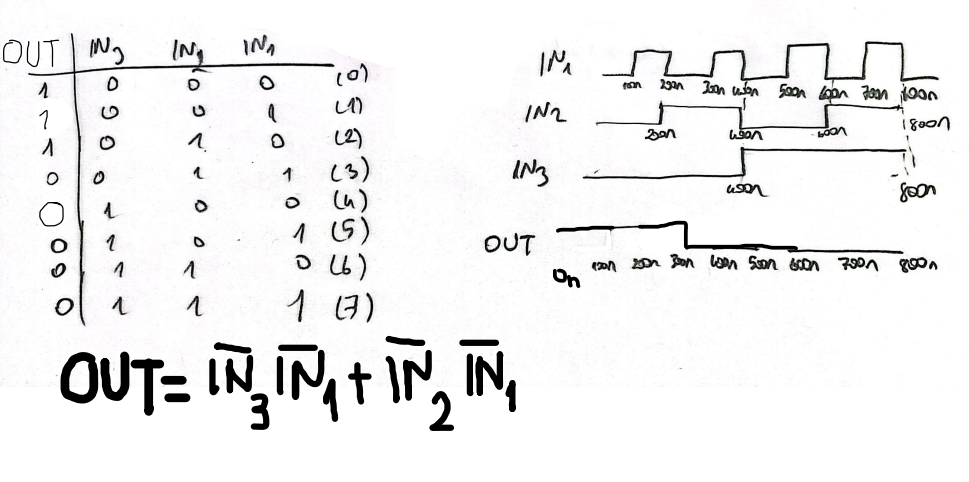 OUT IN3 IN2 IN1
1 0 0 0 (0)
1 0 0 1 (1)
1 0 1 0 (2)
0 0 1 1 (3)
0 1 0 0 (4)
0 1 0 1 (5)
0 1 1 0 (6)
0 1 1 1 (7)
IN1
100n 200n 300n 400n 500n 600n 700n 800n
IN2
200n 400n 600n 800n
IN3
400n 800n
OUT
0n 100n 200n 300n 400n 500n 600n 700n 800n
OUT= I̅N̅₃ I̅N̅₁ + I̅N̅₂ I̅N̅₁